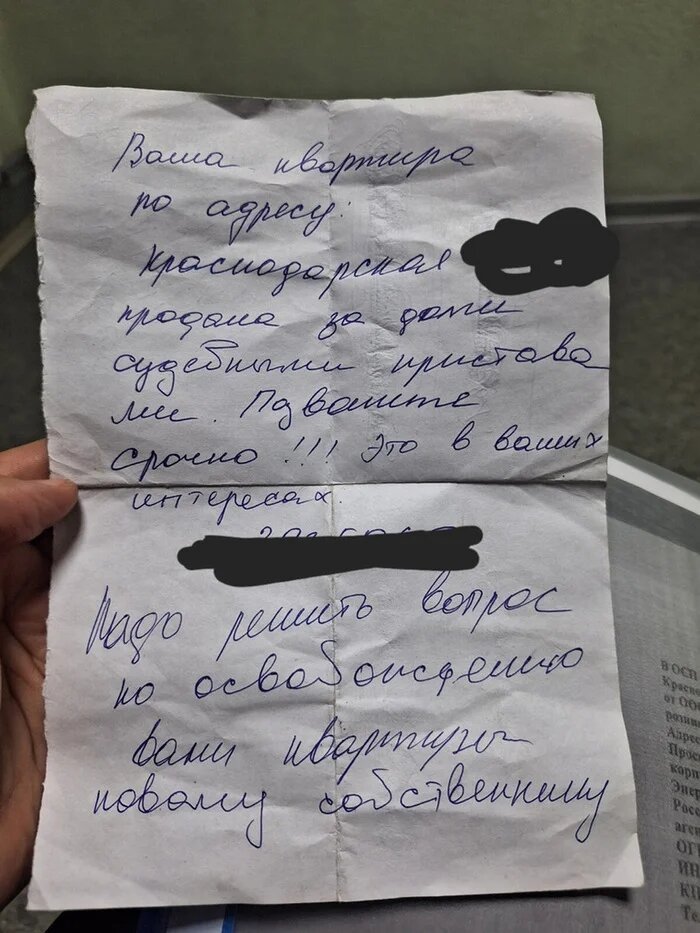 Ваша квартира
по адресу:
Краснодарская
продана за долги
судебными пристава
ми. Позвоните
срочно!!! Это в ваших
интересах.
Надо решить вопрос
по освобождению
вами квартиры
новому собственнику
В ОСП
Красно
от ООО
розни
Адрес
Прос
корп
Энер
Росс
аген
ОГР
ИН
КП
Те